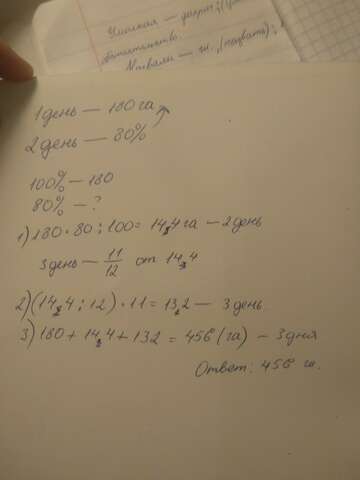 обстоятельство
Назвали — гл., (назвать);
1 день — 180 га
2 день — 80%
100% — 180
80% — ?
1) 180 · 80 : 100 = 14,4 га — 2 день
3 день — 11/12 от 14,4
2) (14,4 : 12) · 11 = 13,2 — 3 день
3) 180 + 14,4 + 132 = 456 (га) — 3 дня
Ответ: 456 га.